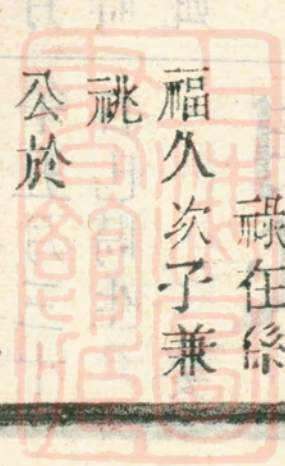 祿在係
福久次子兼
祧
公於